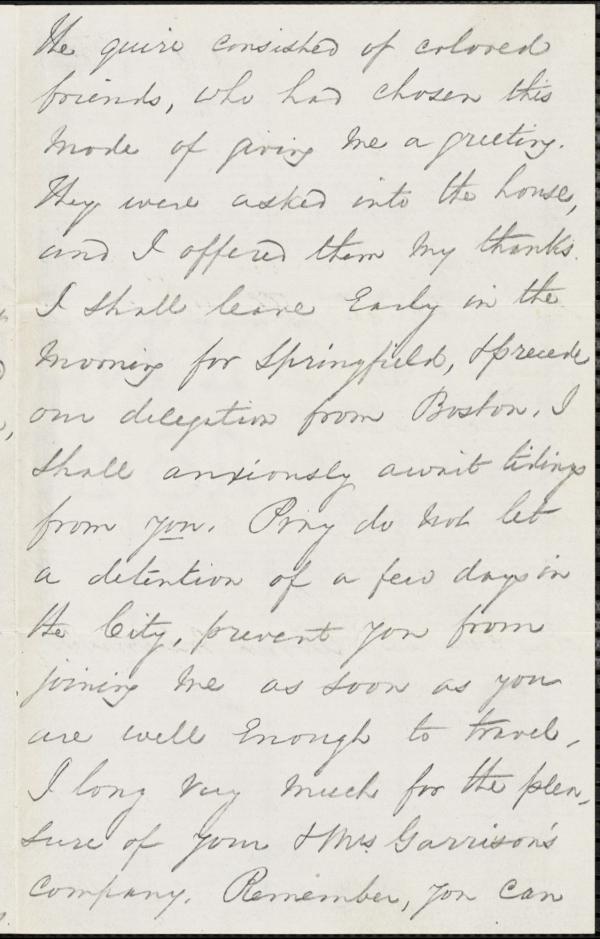 The quire consisted of colored
friends, who had chosen this
mode of giving me a greeting.
They were asked into the house,
and I offered them my thanks.
I shall leave Early in the
morning for Springfield, & precede
our delegation from Boston. I
shall anxiously await tidings
from you. Pray do not let
a detention of a few days in
the City, prevent you from
joining me as soon as you
are well Enough to travel,
I long very much for the plea-
sure of your & Mrs. Garrison's
company. Remember, you can